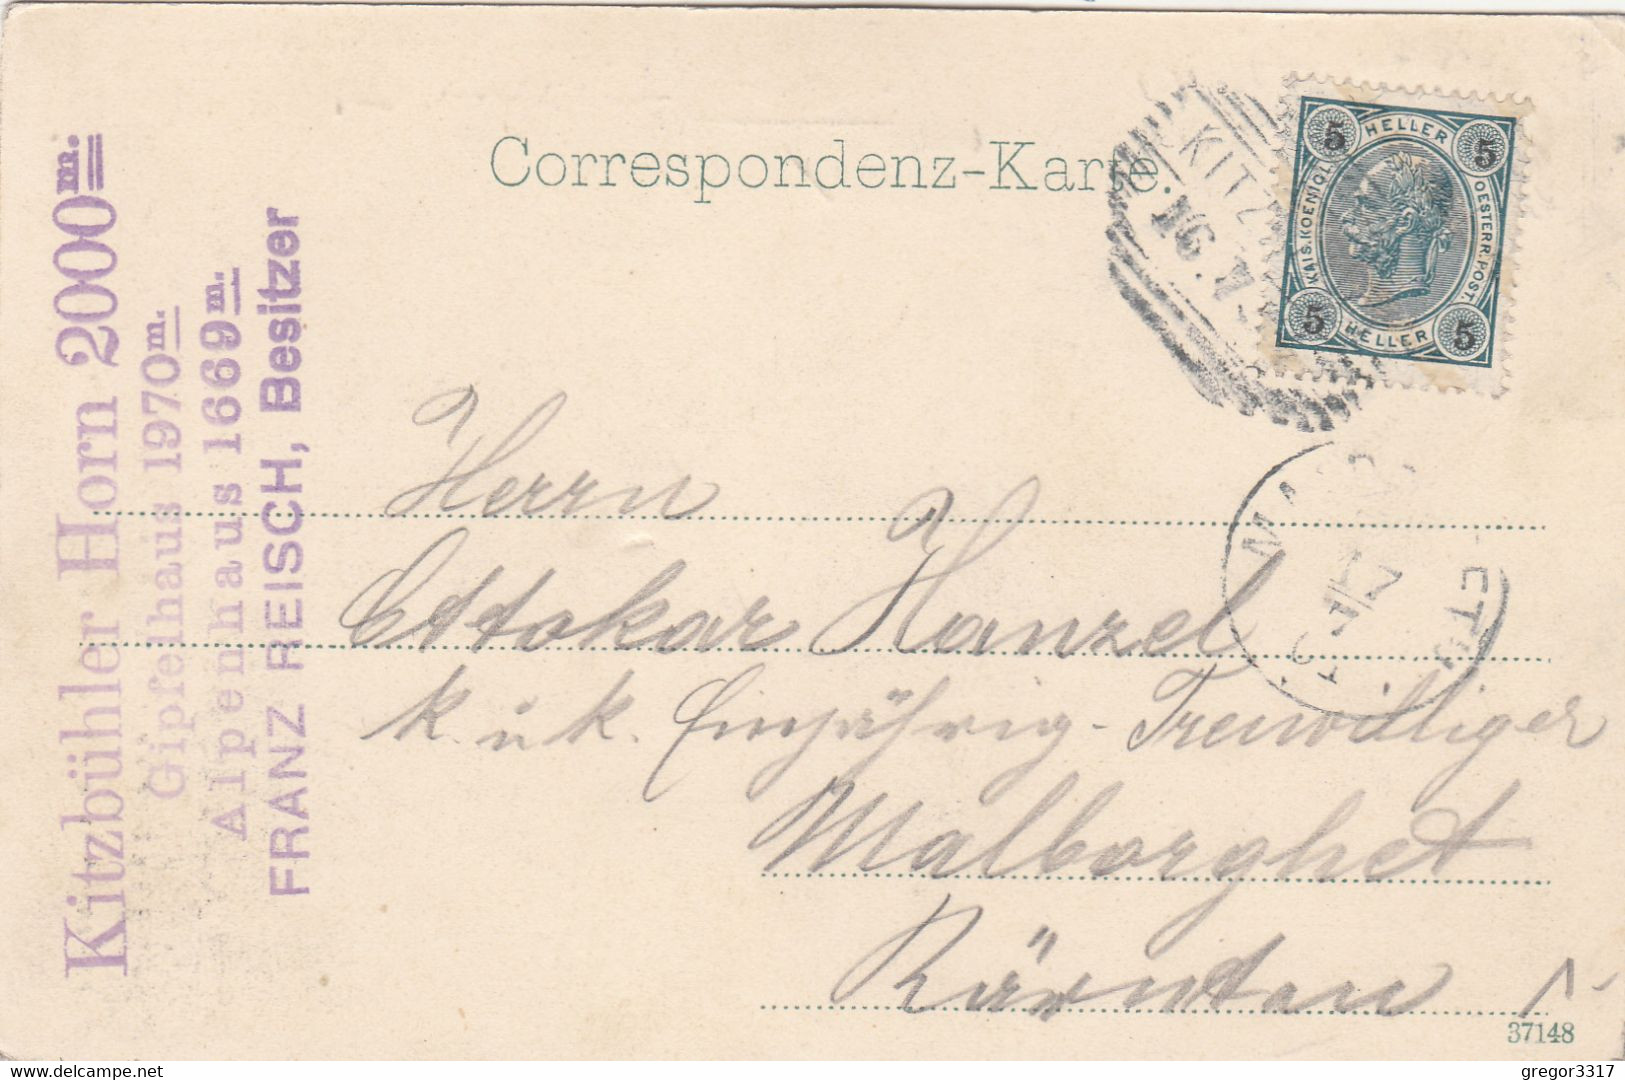 Correspondenz-Karte.
Kitzbühler Horn 2000m.
Gipfelhaus 1970m.
Alpenhaus 1669m.
FRANZ REISCH, Besitzer
KITZ
16.
5 HELLER 5
KAIS. KOENIGL.
OESTERR. POST.
5 HELLER 5
17
Herrn
Ottokar Hanzel
k. u. k. Einjährig-Freiwilliger
Malborghet
Kärnten
37148
www.delcampe.net
gregor3317